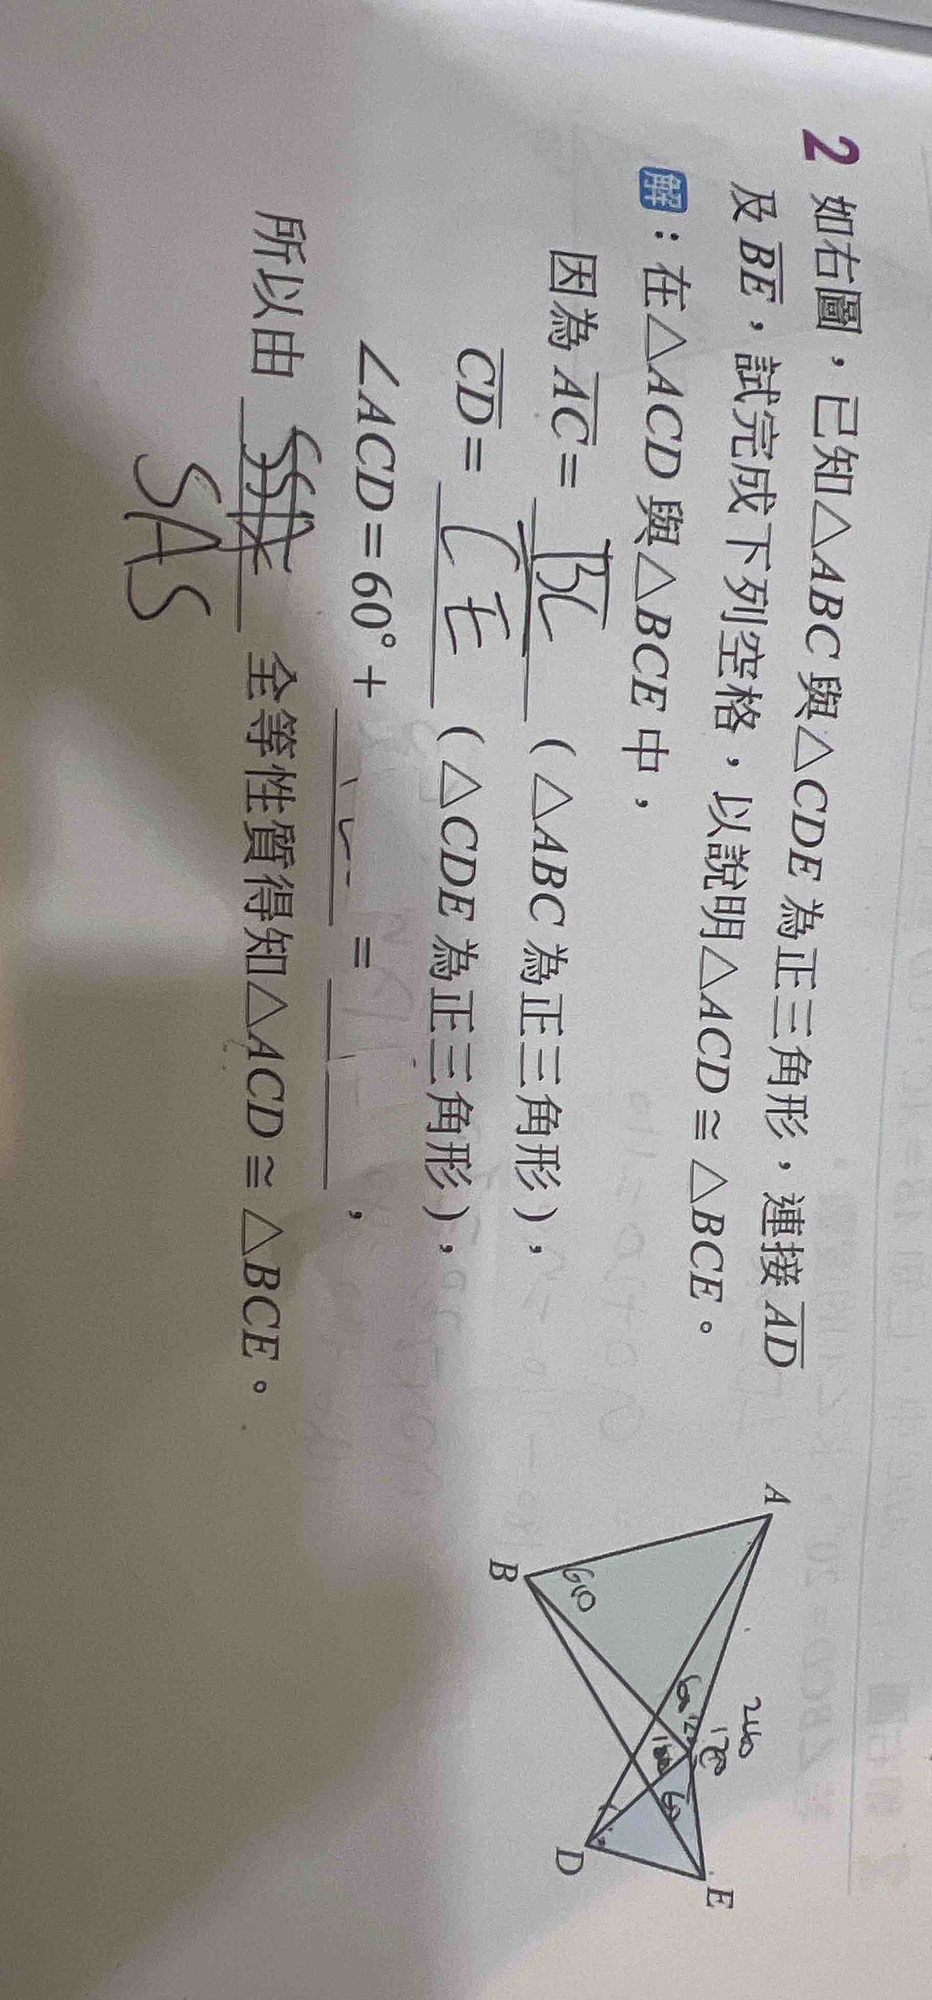 2 如右圖，已知△ABC與△CDE為正三角形，連接AD
及BE，試完成下列空格，以說明△ACD≅△BCE。
解：在△ACD與△BCE中，
因為AC=BC（△ABC為正三角形），
CD=CE（△CDE為正三角形），
∠ACD=60°+____=____，
所以由____全等性質得知△ACD≅△BCE。
SAS
A
B
D
E
60
60
60
240